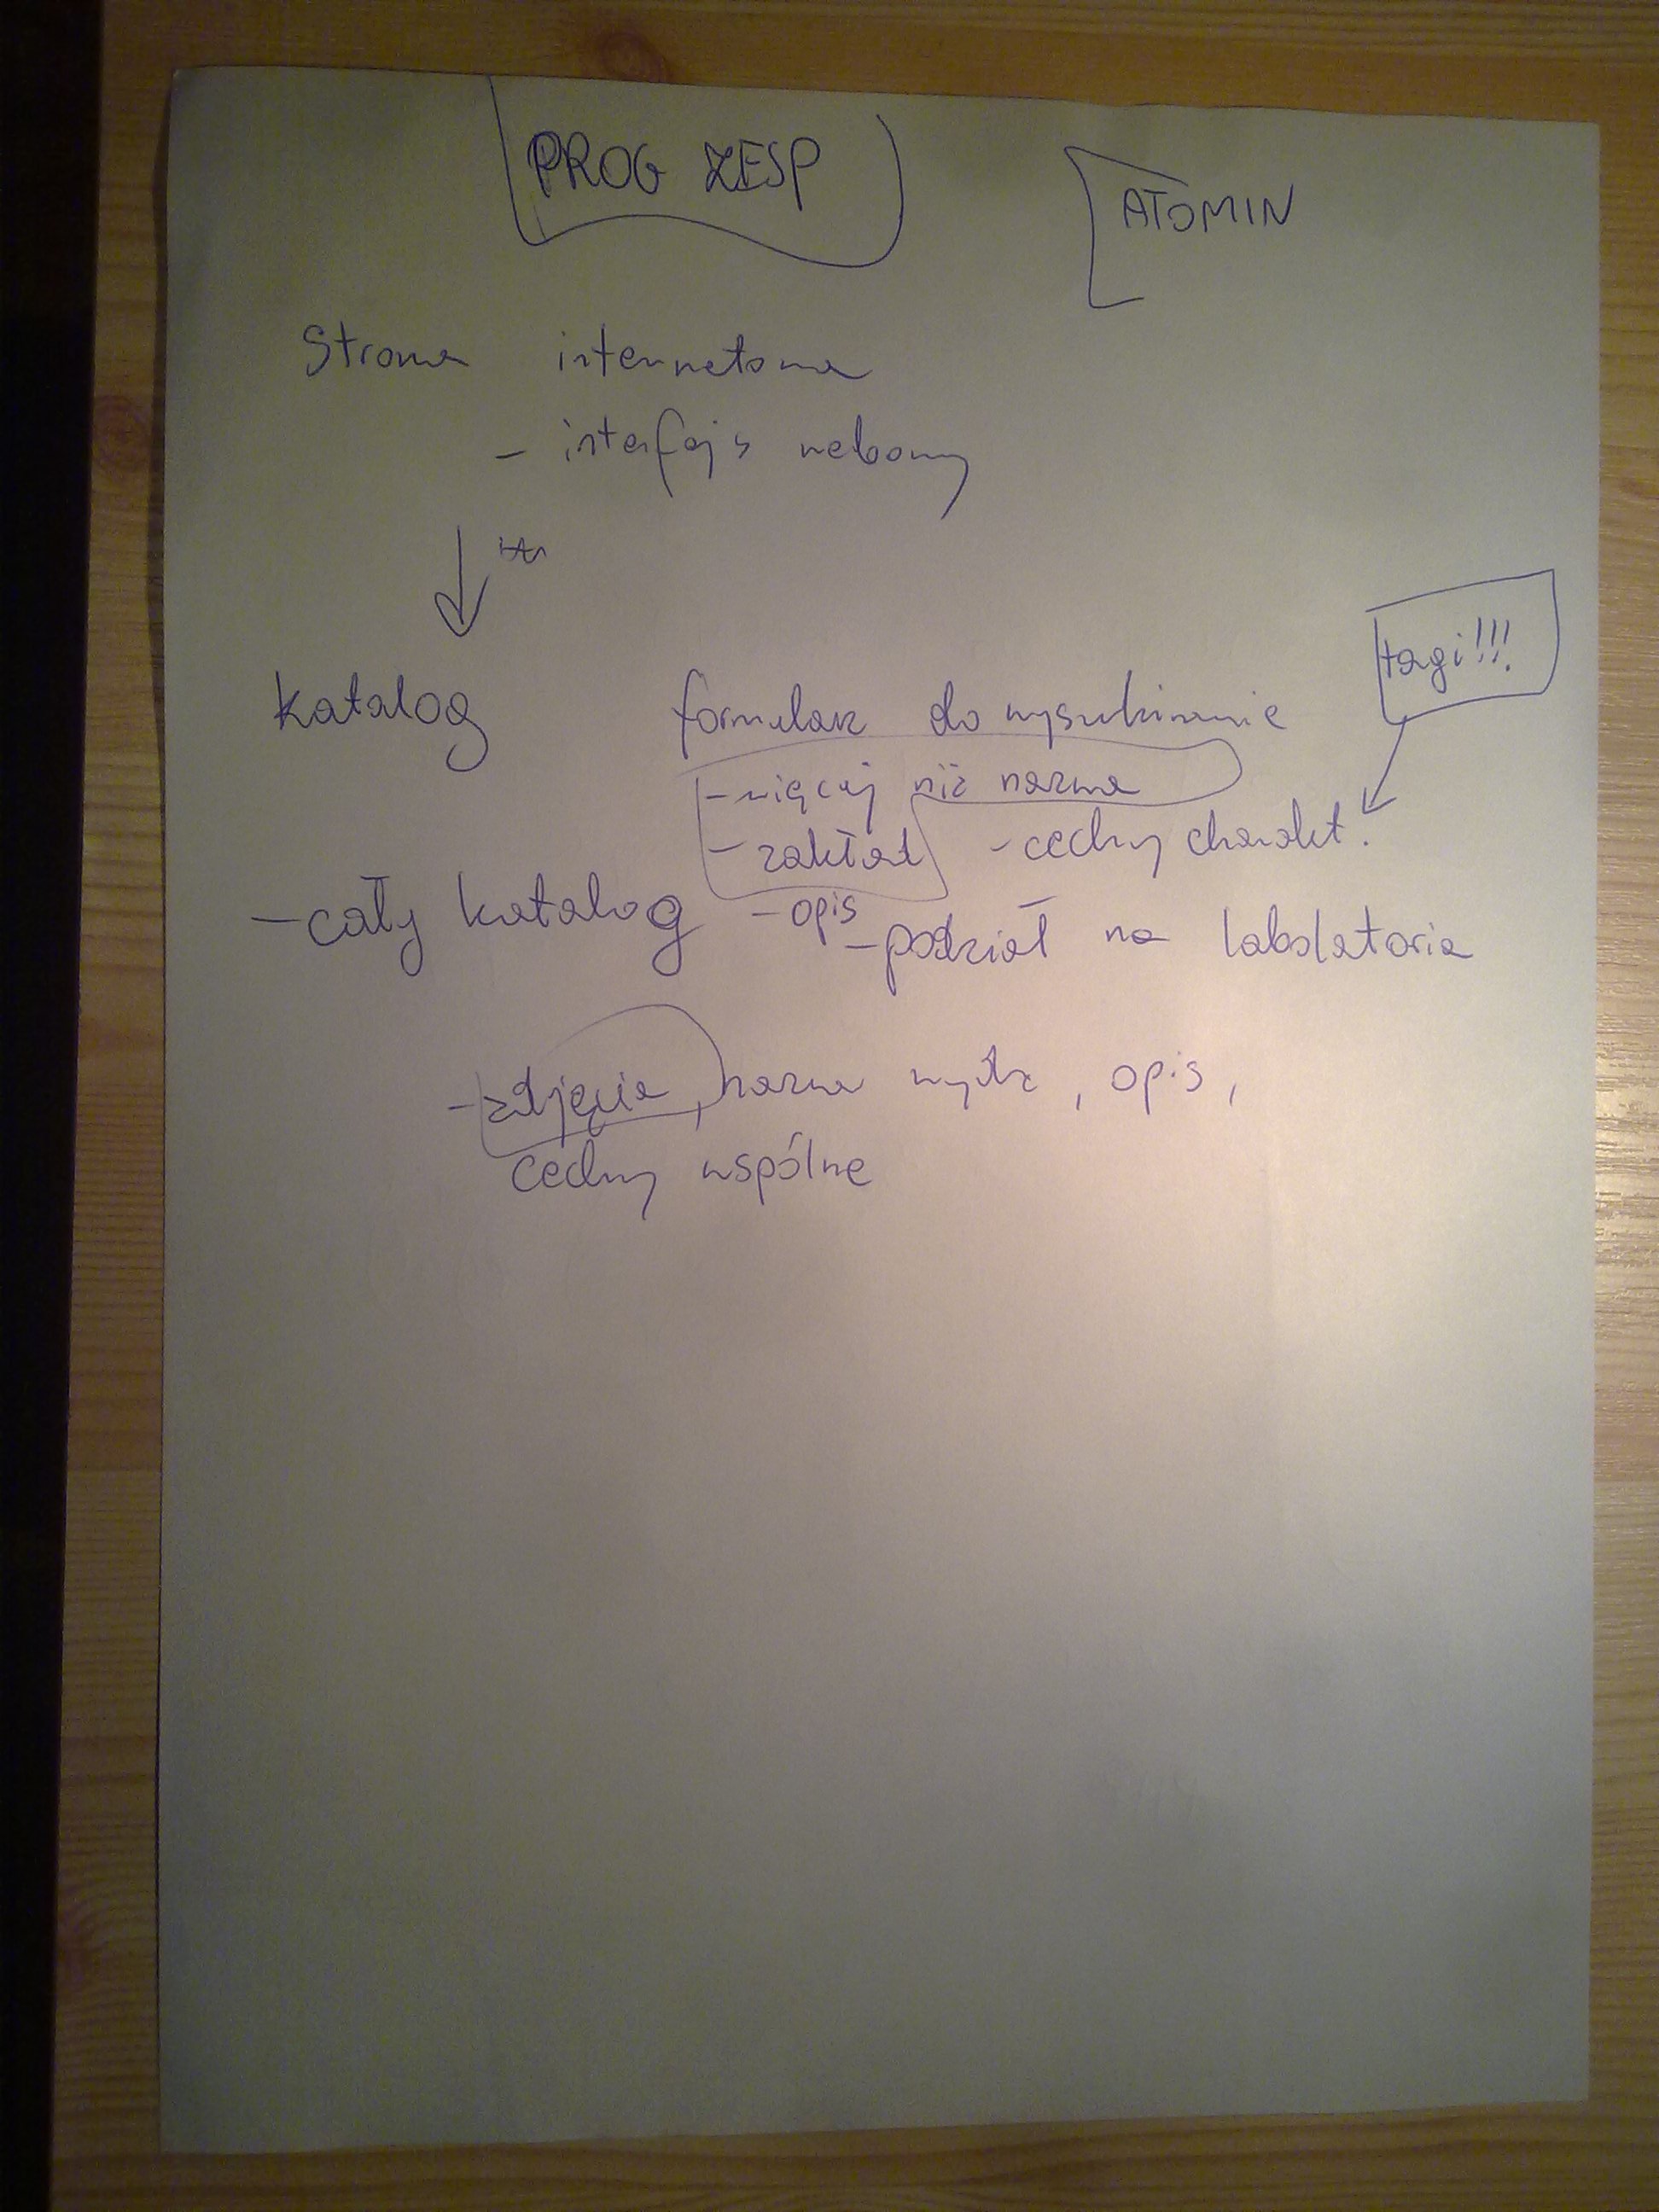 PROG ZESP
ATOMIN
Strona internetowa
- interfejs webowy
tagi!!!
katalog formularz do wyszukiwania
- więcej niż nazwa
- zakład - cechy charakt.
- cały katalog - opis
- podział na laboratoria
- zdjęcia, nazwa, opis,
cechy wspólne